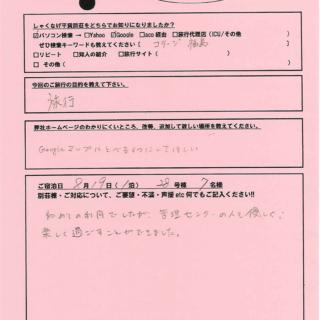 しゃくなげ平貸別荘をどちらでお知りになりましたか?
☑パソコン検索 → □Yahoo ☑Google □aco 経由 □旅行代理店(ICU/その他 )
ぜひ検索キーワードも教えてください( コテージ 福島 )
□リピート □知人の紹介 □旅行サイト( )
□ その他( )
今回のご旅行の目的を教えて下さい。
旅行
弊社ホームページのわかりにくいところ、改善、追加して欲しい場所を教えてください。
Googleマップにとべるようにしてほしい
ご宿泊日 8月19日(1泊) 28号棟 7名様
別荘種・ご対応について、ご要望・不満・声援 etc 何でもご記入ください!!
初めての利用でしたが、管理センターの人も優しく、
楽しく過ごすことができました。